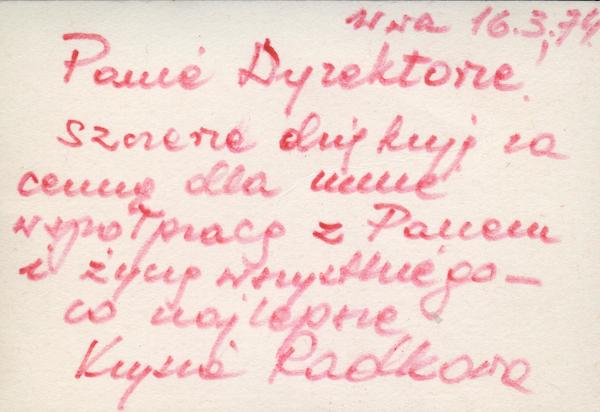 W-wa 16.3.74.
Panie Dyrektorze!
Szczerze dziękuję za
cenną dla mnie
współpracę z Panem
i życzę wszystkiego –
co najlepsze
Krysia